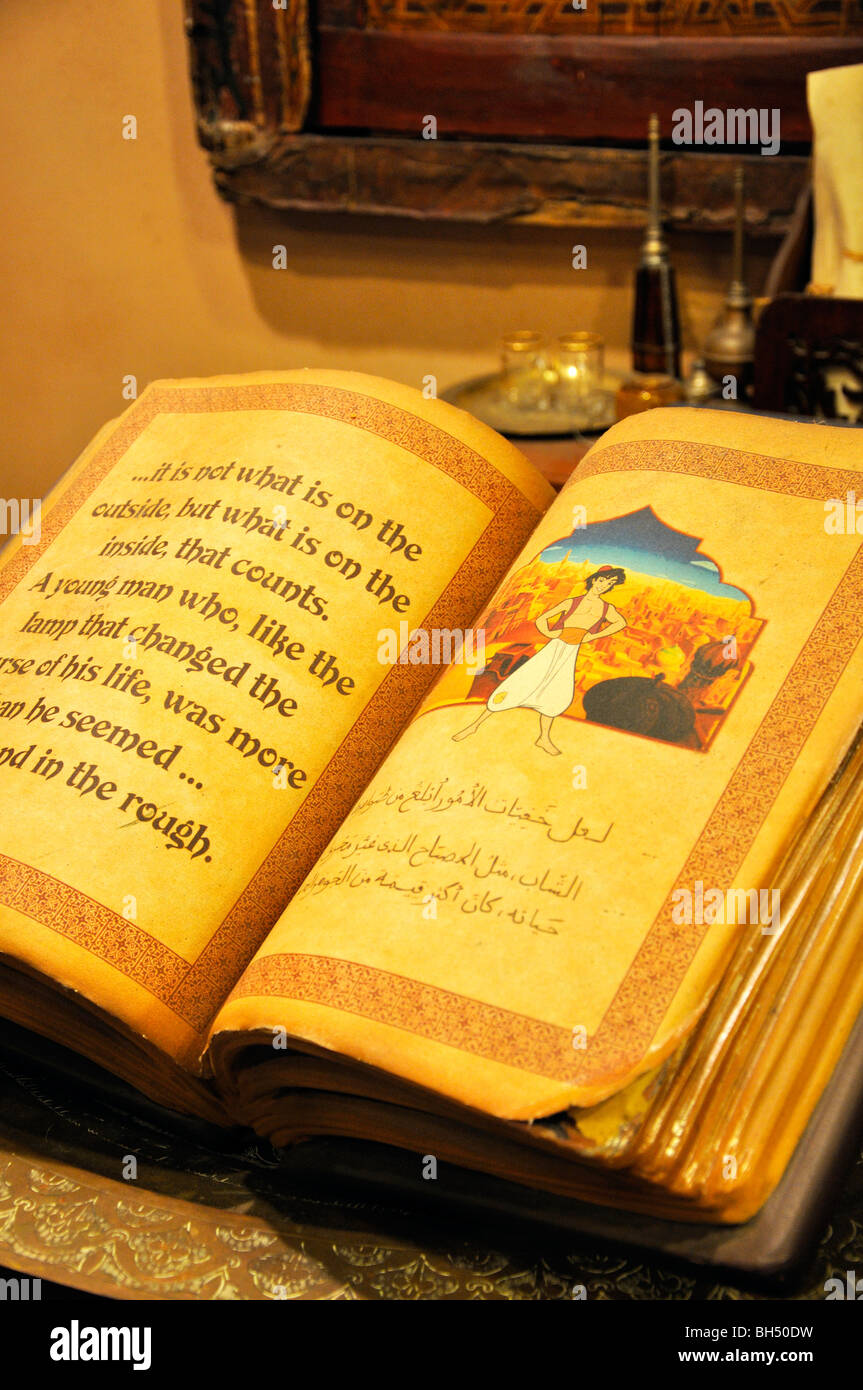 ...it is not what is on the
outside, but what is on the
inside, that counts.
A young man who, like the
lamp that changed the
rse of his life, was more
an he seemed ...
nd in the rough.
لعل خفيات الأمور أبلغ من
الشاب، مثل المصباح الذي غير
حياته، كان أكثر قيمة من
alamy
Image ID: BH50DW
www.alamy.com